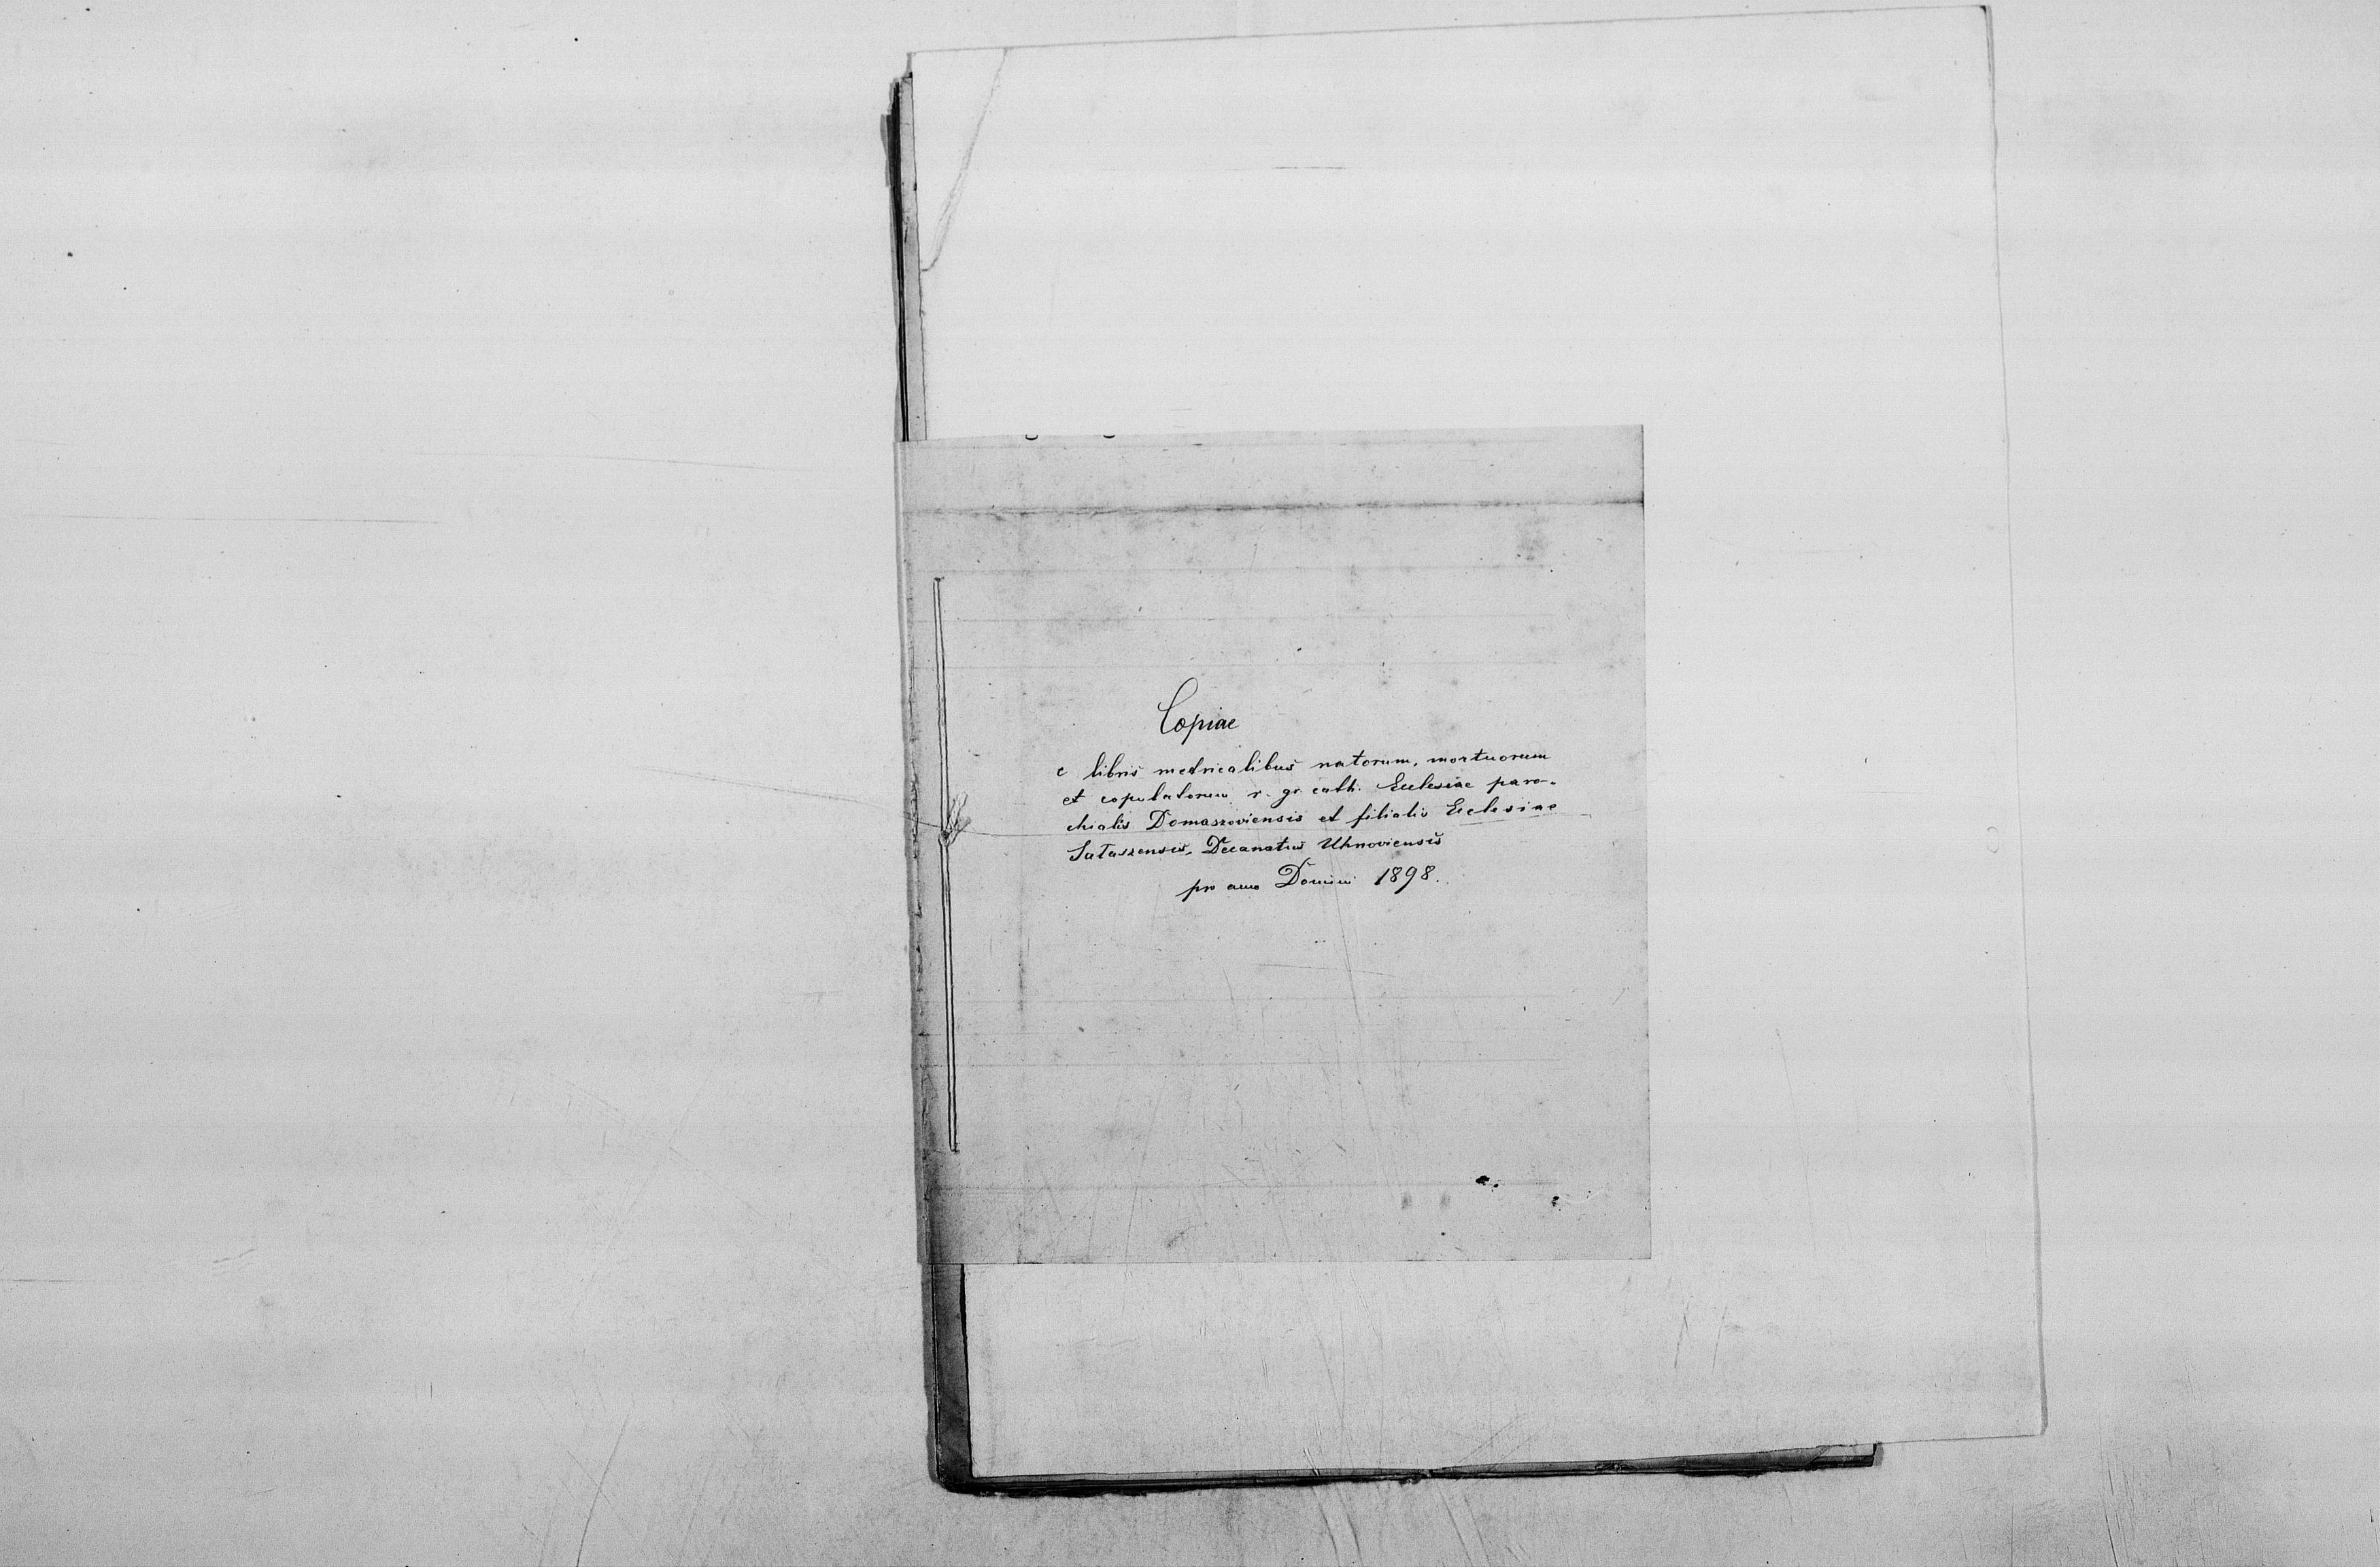 Copiae
e libris metricalibus natorum, mortuorum
et copulatorum r. gr. cath. Ecclesiae paro-
chialis Domaszoviensis et filialis Ecclesiae
Sałaszensis, Decanatus Uhnoviensis
pro anno Domini 1898.